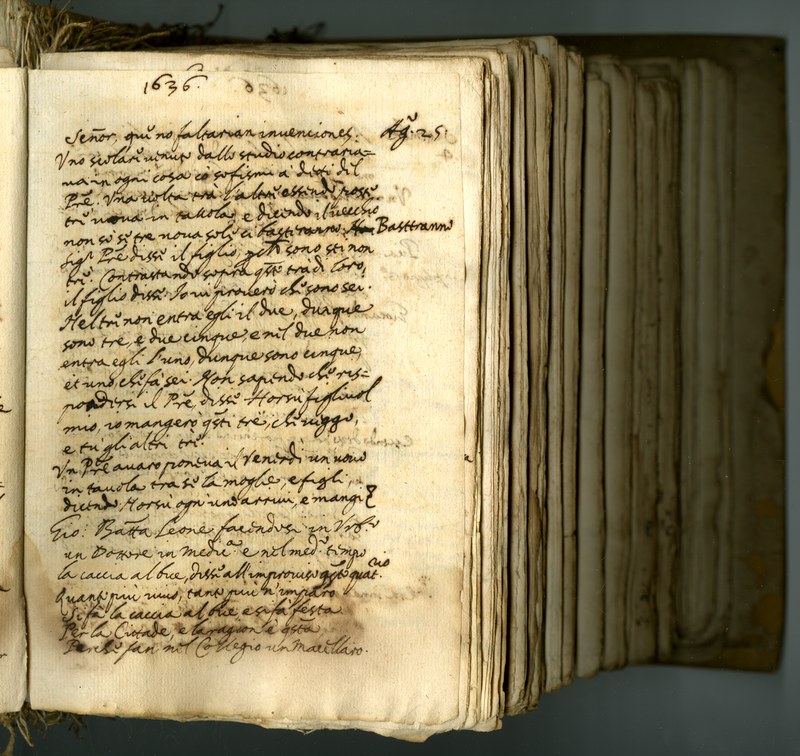 1636.
Señor, qui no faltarian invenciones. Ag.º 25.
Uno scolari venuto dallo studio contraria=
va in ogni cosa cõ sofismi à dieti del
Prẽ. Una volta trà l'altri essendo poste
tri uova in tavola, e dicendo il vecchio
non sè sè tre nova soli ci basteranno. Basttranno
sigr Prẽ dissi il figlio, perche sono sti non
tri. Contrastando sopra qsto tra di loro,
il figlio dissi. Io vi proverò chi sono sei.
Nel tri non entra egli il due, dunque
sono tre, e due cinque, e nil due non
entra egli l'uno, dunque sono cinque,
et uno, chi fà sei. Non sapendo chi ris=
pondersi il Prẽ, dissi. Horsù figliuol
mio, io mangerò qsti trè, chi veggo,
e tu gli altri tri.
Un Prẽ avaro poneva il Venerdì un uovo
in tavola tra sè la moglie, e figli,
dicendo Horsù ogni uno arrivi, e mangi
Gio: Batta Leone facendosi in Urbº
un Dottore in Medicª e nel medº tempo
la caccia al bue, dissi all'improviso qsto quat.rio
Quanto più vivo, tanto più n'imparo
Si fà la caccia al bue e si fà festa
Per la Cittade, e la ragion è qsta
Perchè fan nil Collegio un Macillaro.